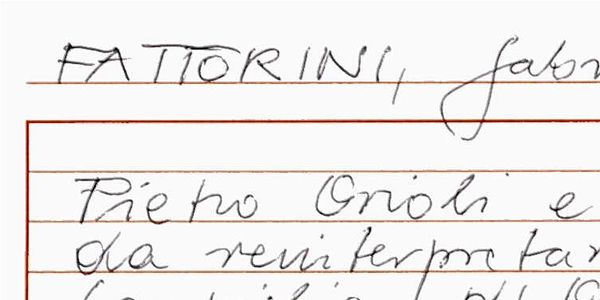 FATTORINI, Gabr
Pietro Orioli e
da reinterpretar